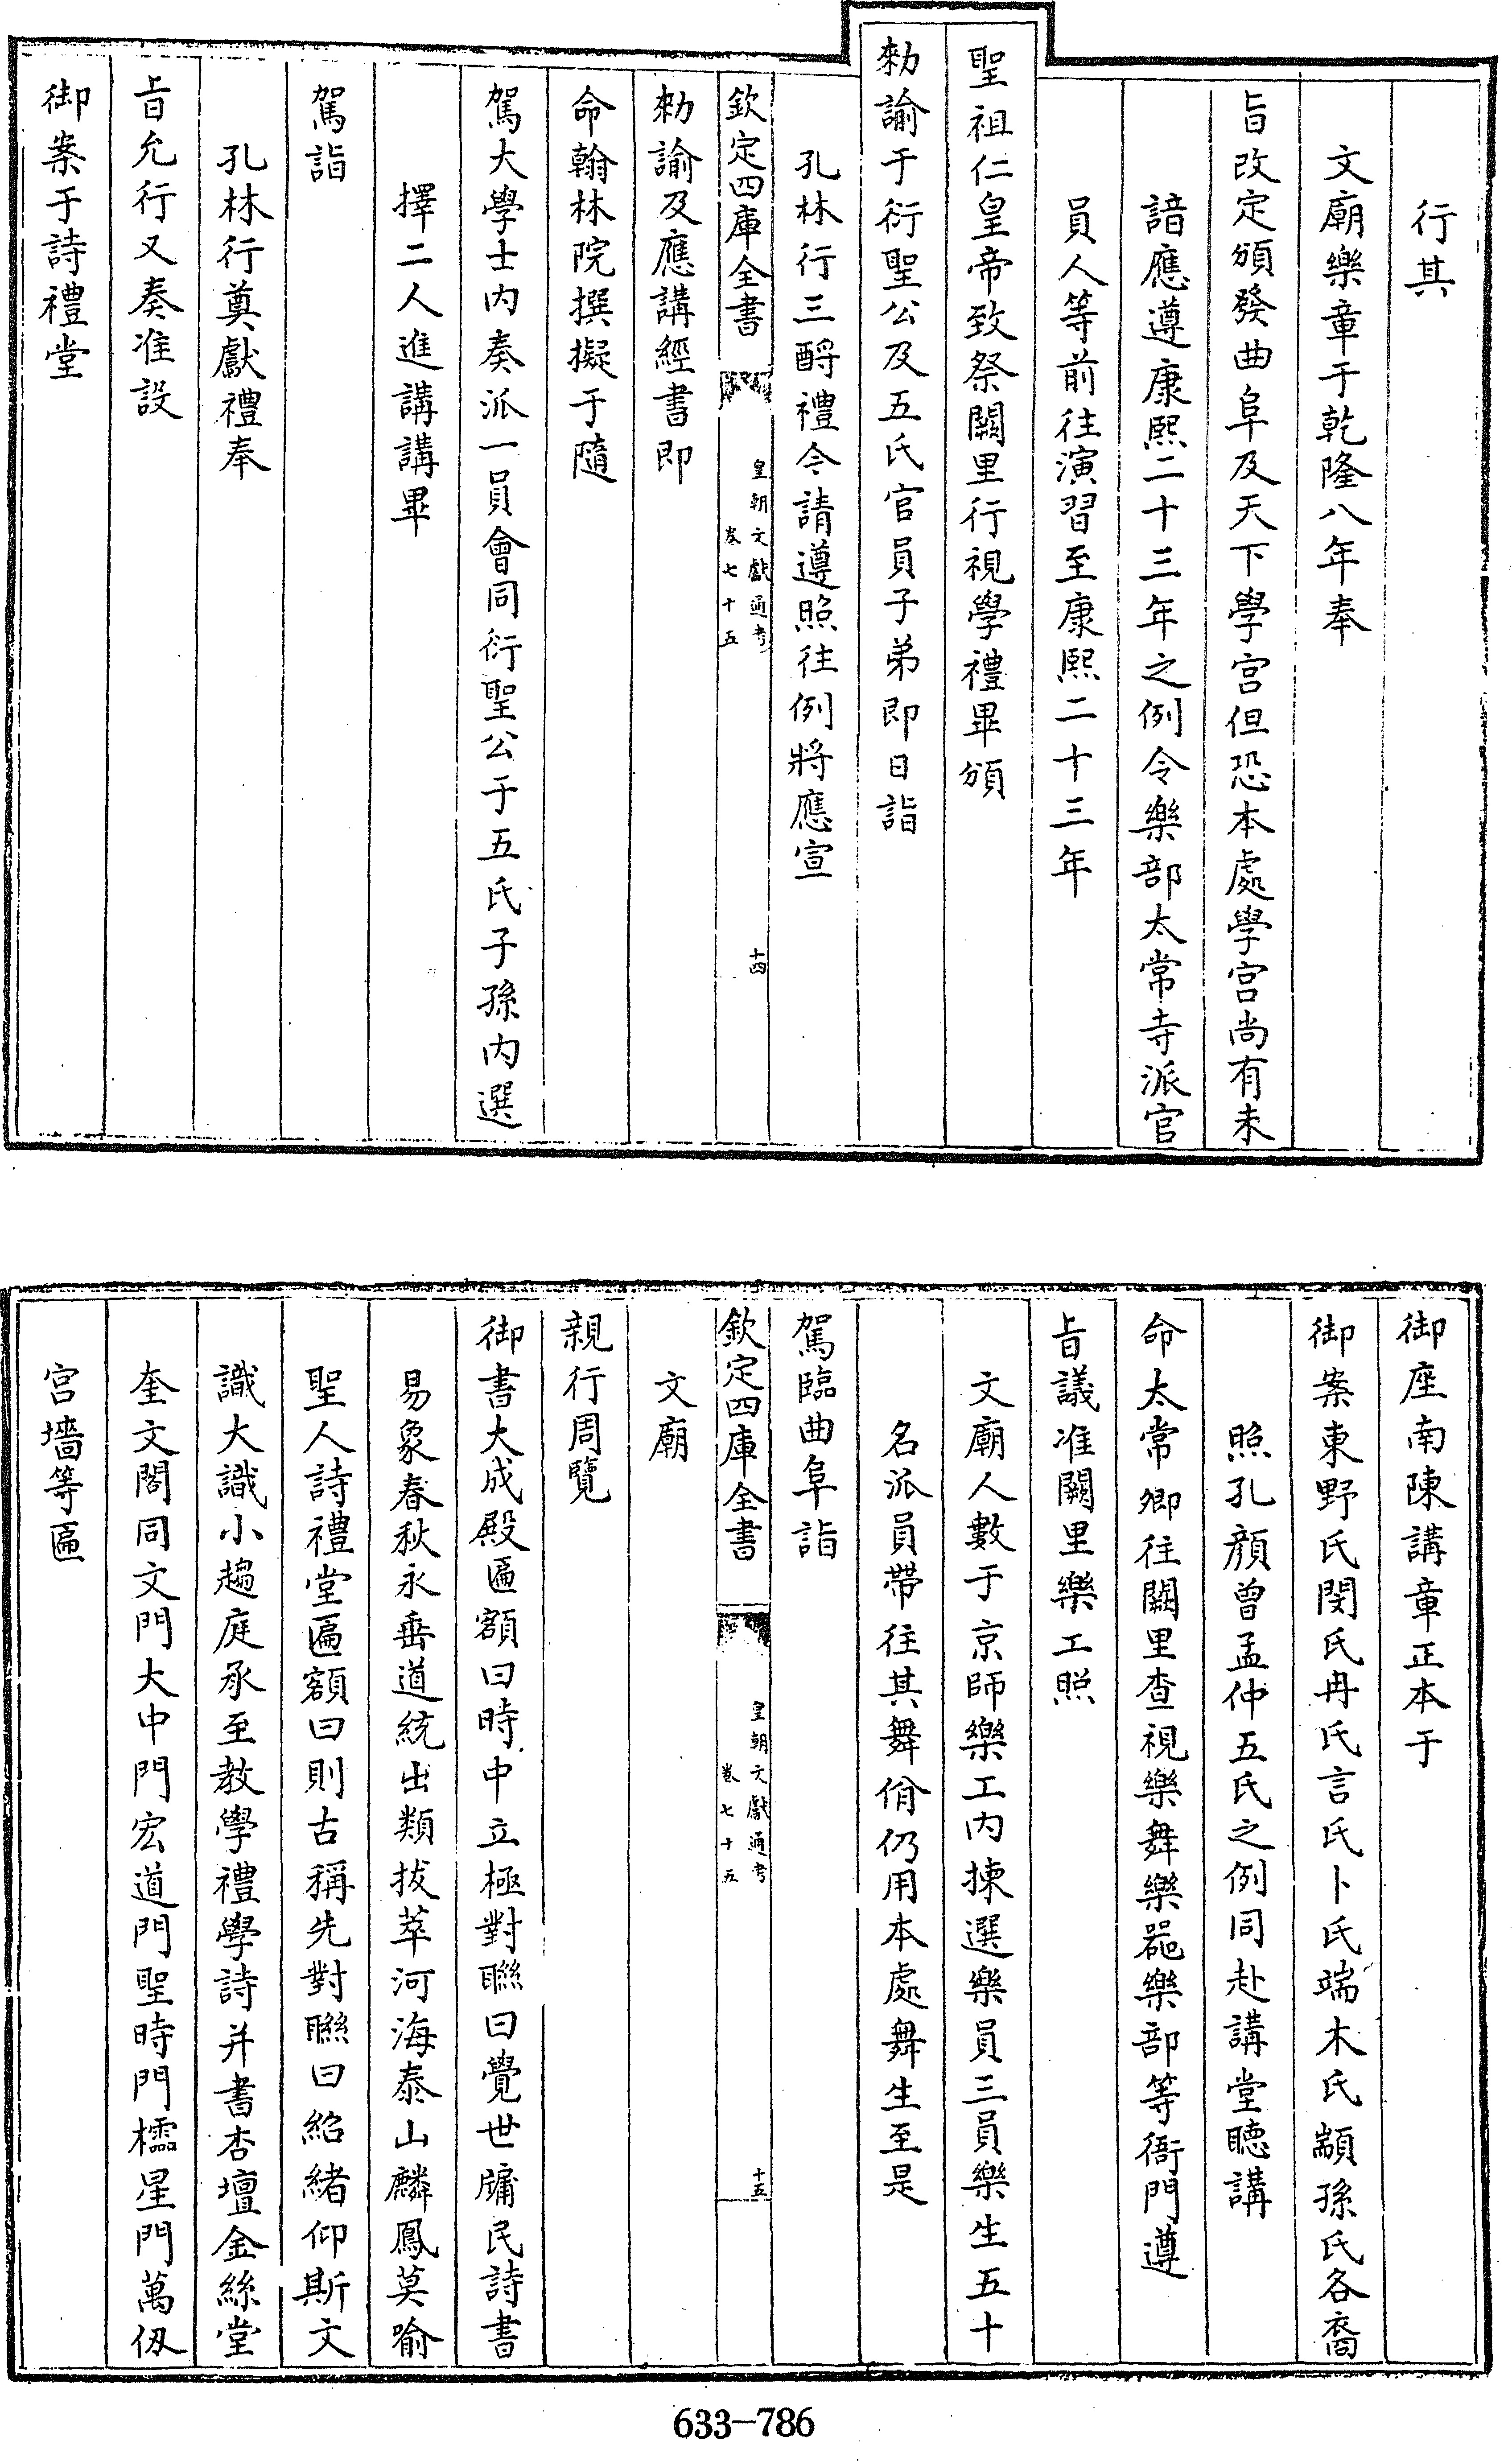 行其
文廟樂章于乾隆八年奉
旨改定頒發曲阜及天下學宮但恐本處學宮尚有未
諳應遵康熙二十三年之例令樂部太常寺派官
員人等前往演習至康熙二十三年
聖祖仁皇帝致祭闕里行視學禮畢頒
勅諭于衍聖公及五氏官員子弟即日詣
孔林行三酹禮今請遵照往例將應宣
欽定四庫全書
皇朝文獻通考
卷七十五
十四
勅諭及應講經書即
命翰林院撰擬于隨
駕大學士內奏派一員會同衍聖公于五氏子孫內選
擇二人進講講畢
駕詣
孔林行奠獻禮奉
旨允行又奏准設
御案于詩禮堂
御座南陳講章正本于
御案東野氏閔氏冉氏言氏卜氏端木氏顓孫氏各裔
照孔顏曾孟仲五氏之例同赴講堂聽講
命太常卿往闕里查視樂舞樂器樂部等衙門遵
旨議准闕里樂工照
文廟人數于京師樂工內揀選樂員三員樂生五十
名派員帶往其舞佾仍用本處舞生至是
駕臨曲阜詣
欽定四庫全書
皇朝文獻通考
卷七十五
十五
文廟
親行周覽
御書大成殿匾額曰時中立極對聯曰覺世牖民詩書
易象春秋永垂道統出類拔萃河海泰山麟鳳莫喻
聖人詩禮堂匾額曰則古稱先對聯曰紹緒仰斯文
識大識小趨庭承至教學禮學詩并書杏壇金絲堂
奎文閣同文門大中門宏道門聖時門櫺星門萬仞
宮墻等匾
633-786